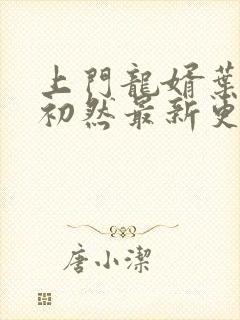 上門龍婿葉
初然最新更
唐小潔